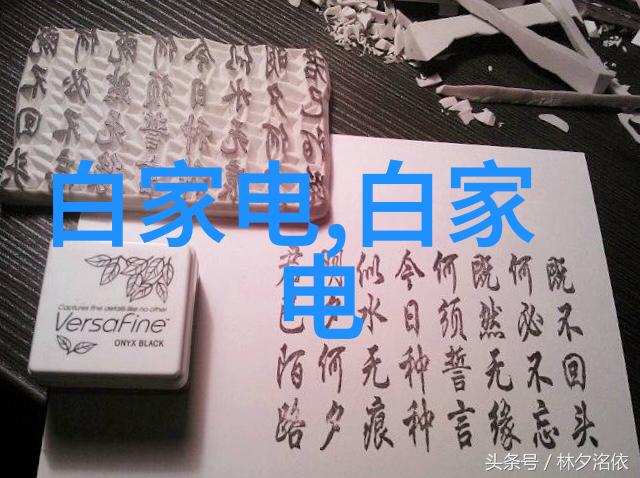 白家电,白家
电
既不回头
何必不忘
既然无缘
何须誓言
今日种种
似水无痕
明夕何夕
君已陌路
Captures fine details like no other
VersaFine
ONYX BLACK
头条号 / 林夕洺依